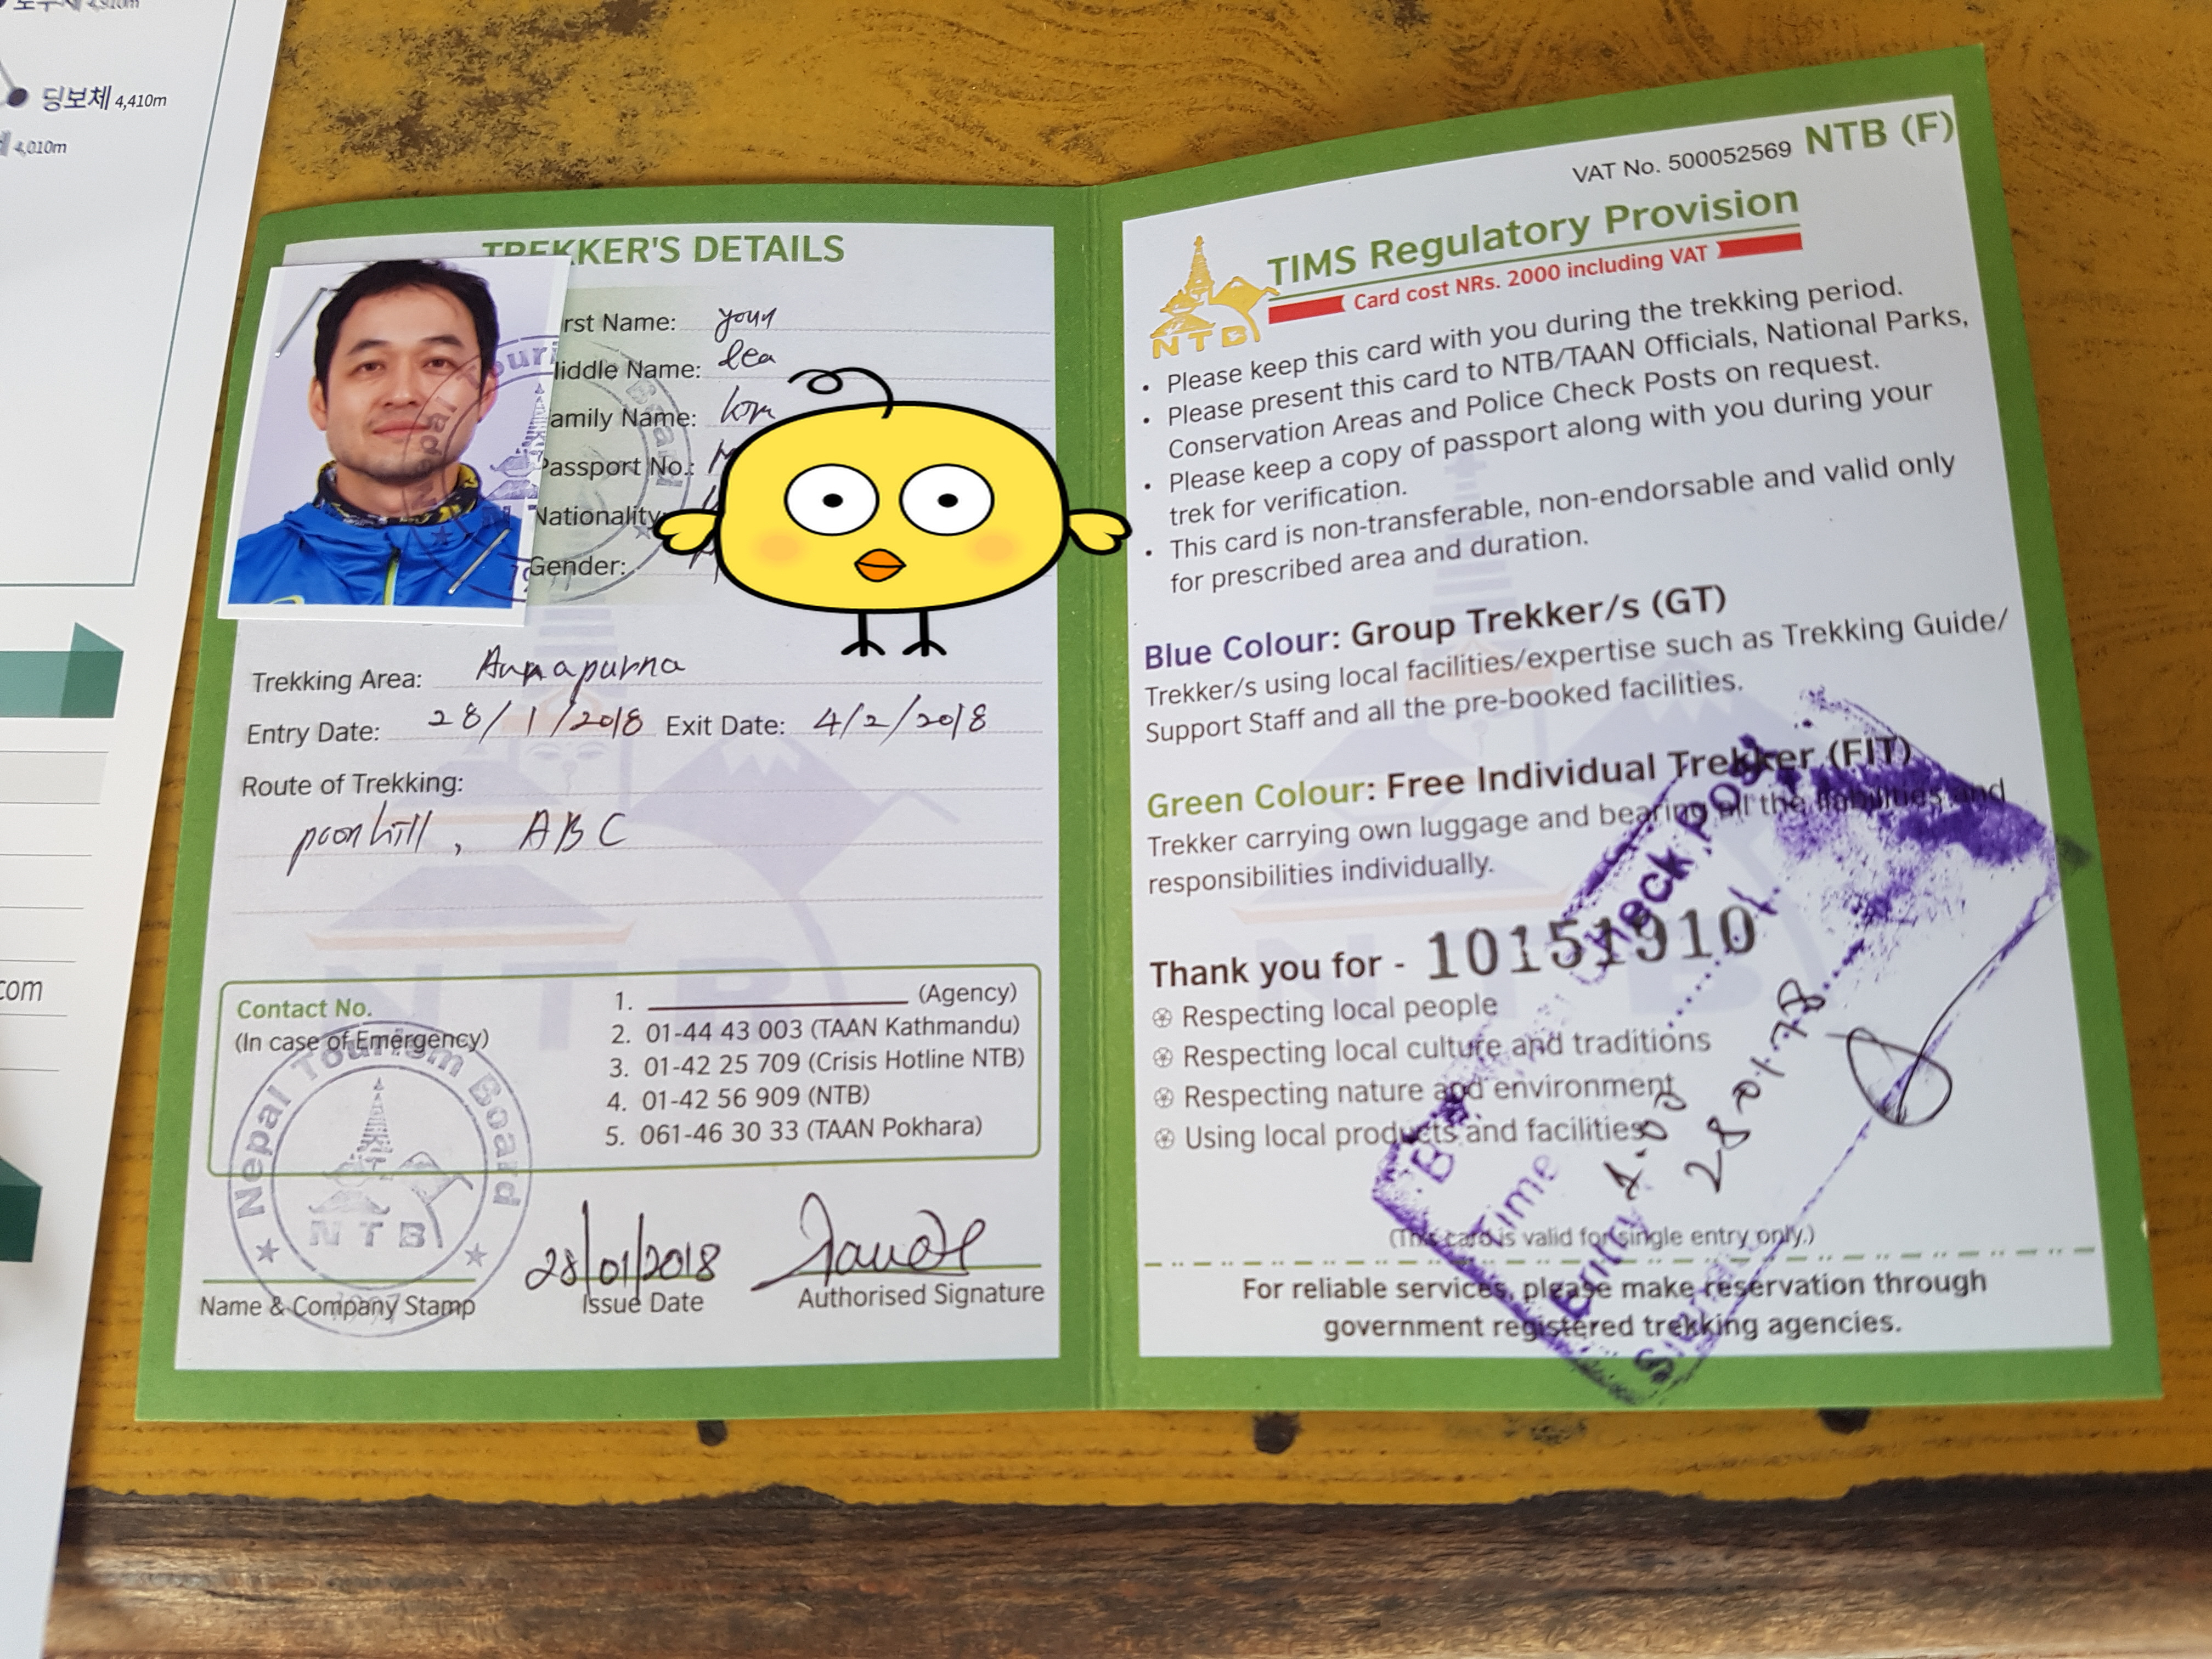 딩보체 4,410m
4,010m
com
TREKKER'S DETAILS
rst Name: youn
iddle Name:
amily Name:
Passport No.:
Nationality:
Gender:
Trekking Area: Annapurna
Entry Date: 28/1/2018 Exit Date: 4/2/2018
Route of Trekking:
poonhill, ABC
Contact No.
(In case of Emergency)
1. (Agency)
2. 01-44 43 003 (TAAN Kathmandu)
3. 01-42 25 709 (Crisis Hotline NTB)
4. 01-42 56 909 (NTB)
5. 061-46 30 33 (TAAN Pokhara)
Nepal Tourism Board
NTB
28/01/2018
Name & Company Stamp Issue Date Authorised Signature
VAT No. 500052569 NTB (F)
NTB
TIMS Regulatory Provision
Card cost NRs. 2000 including VAT
• Please keep this card with you during the trekking period.
• Please present this card to NTB/TAAN Officials, National Parks,
Conservation Areas and Police Check Posts on request.
• Please keep a copy of passport along with you during your
trek for verification.
• This card is non-transferable, non-endorsable and valid only
for prescribed area and duration.
Blue Colour: Group Trekker/s (GT)
Trekker/s using local facilities/expertise such as Trekking Guide/
Support Staff and all the pre-booked facilities.
Green Colour: Free Individual Trekker (FIT)
Trekker carrying own luggage and bearing all the liabilities and
responsibilities individually.
Thank you for - 10151910
Respecting local people
Respecting local culture and traditions
Respecting nature and environment
Using local products and facilities
Check Post
Time
(This card is valid for single entry only.)
For reliable services, please make reservation through
government registered trekking agencies.